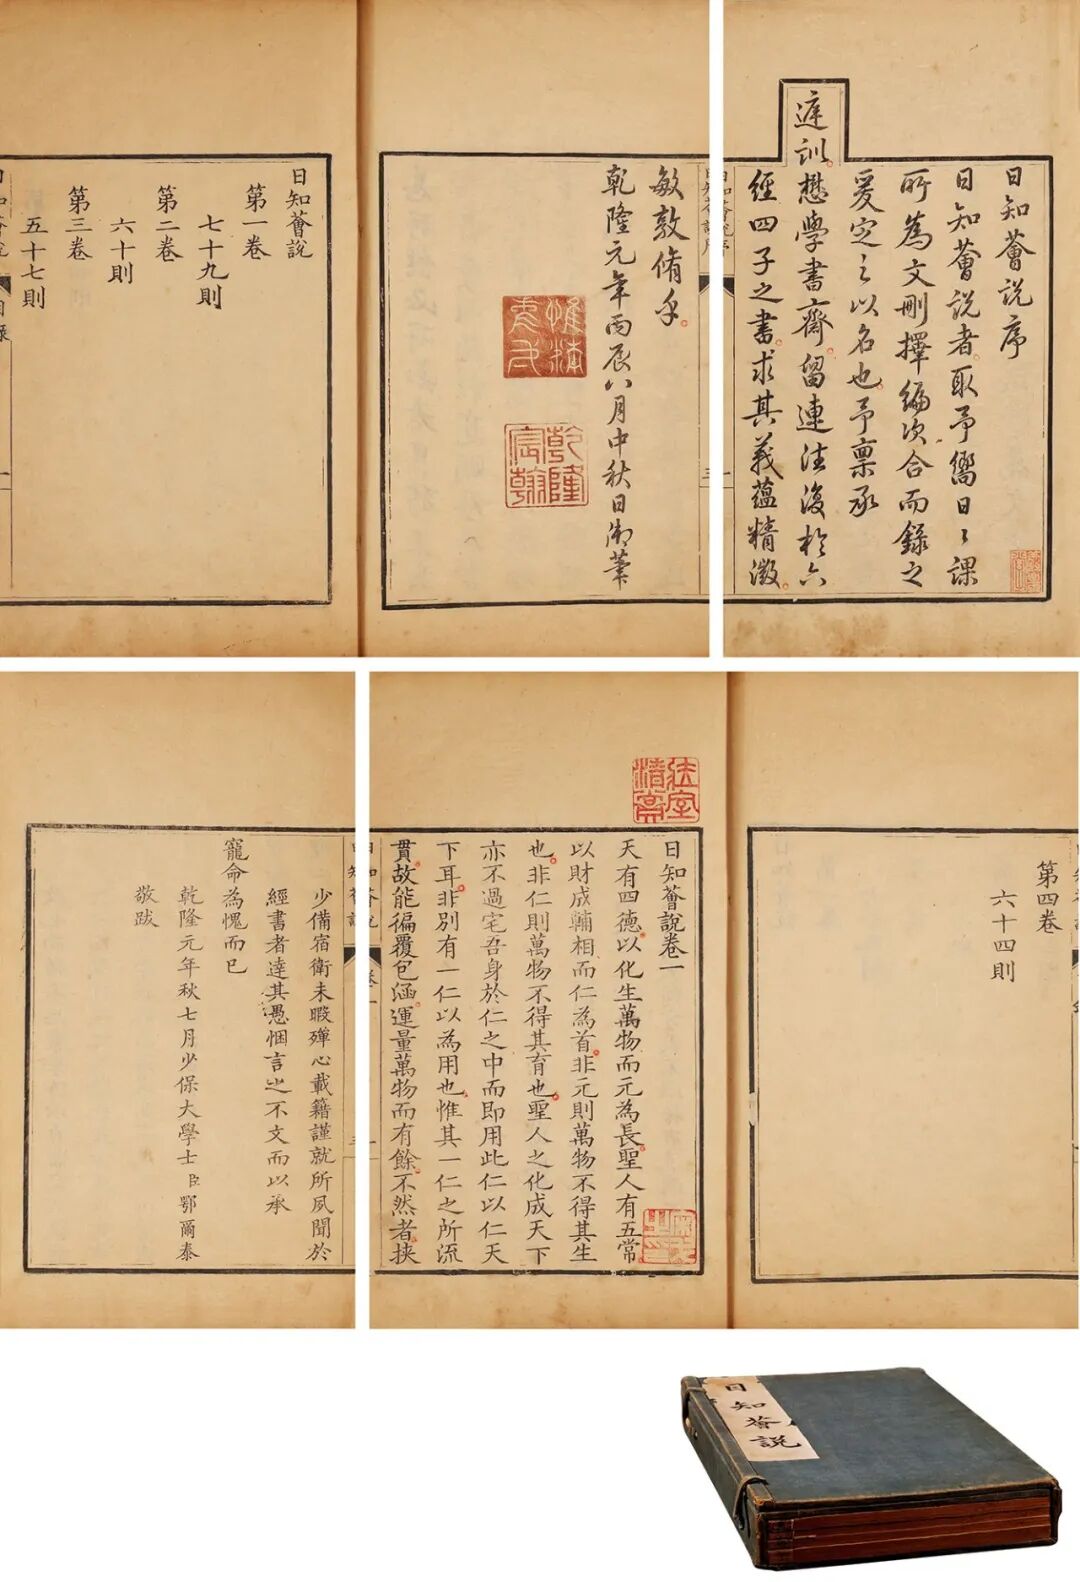 日知薈說序
日知薈說者取予嚮日〻課
所為文刪擇編次合而錄之
爰定之以名也予稟承
庭訓懋學書齋留連往復於六
經四子之書求其義蘊精微
日知薈說序
敏敦脩乎
乾隆元年丙辰八月中秋日御筆
惟精惟一
乾隆宸翰
日知薈說
第一卷
七十九則
第二卷
六十則
第三卷
五十七則
日知薈說
目錄
第四卷
六十四則
日知薈說卷一
天有四德以化生萬物而元為長聖人有五常
以財成輔相而仁為首非元則萬物不得其生
也非仁則萬物不得其育也聖人之化成天下
亦不過宅吾身於仁之中而即用此仁以仁天
下耳非別有一仁以為用也惟其一仁之所流
貫故能徧覆包涵運量萬物而有餘不然者挾
日知薈說
卷一
少備宿衛未暇殫心載籍謹就所夙聞於
經書者達其愚悃言之不文而以承
寵命為愧而已
乾隆元年秋七月少保大學士臣鄂爾泰
敬跋
日知薈說